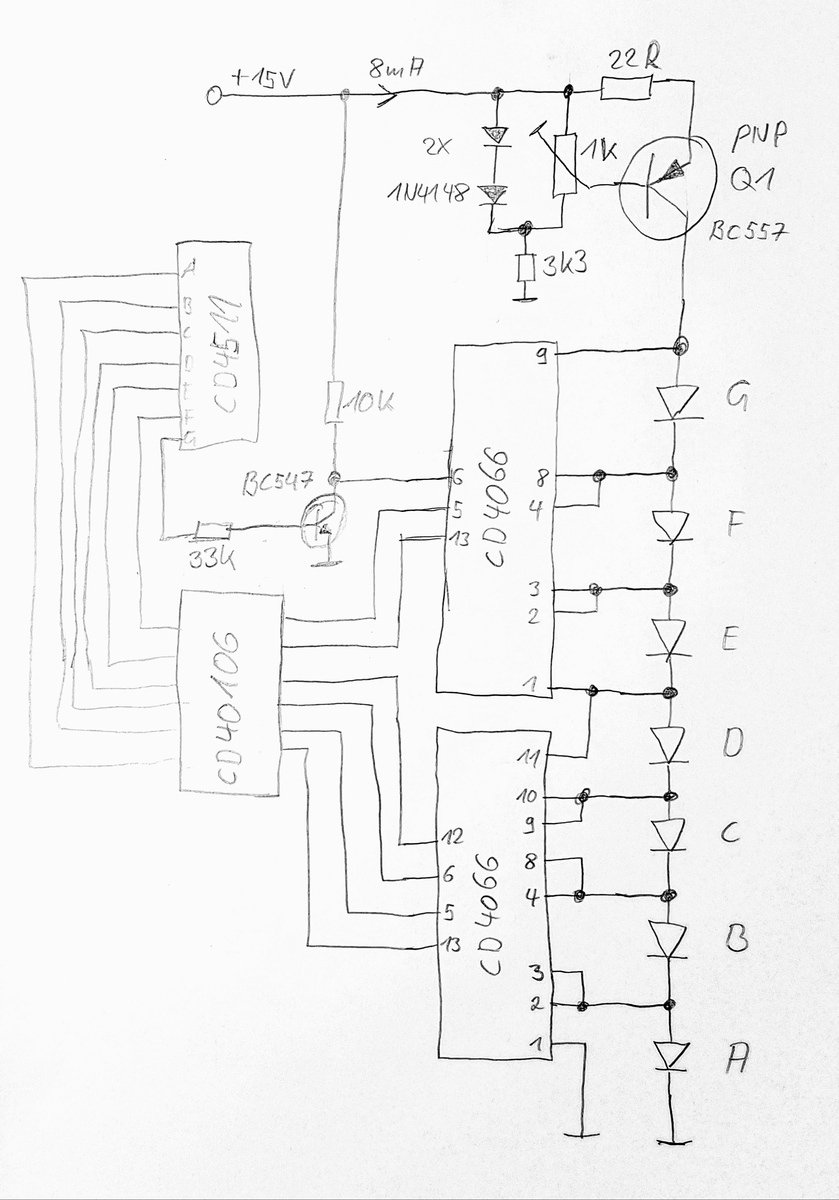 +15V
8mA
22R
2X
1N4148
1K
PNP
Q1
BC557
3K3
CD4511
A
B
C
D
E
F
G
10K
BC547
33K
CD40106
CD4066
6
5
13
9
8
4
3
2
1
CD4066
12
6
5
13
11
10
9
8
4
3
2
1
G
F
E
D
C
B
A